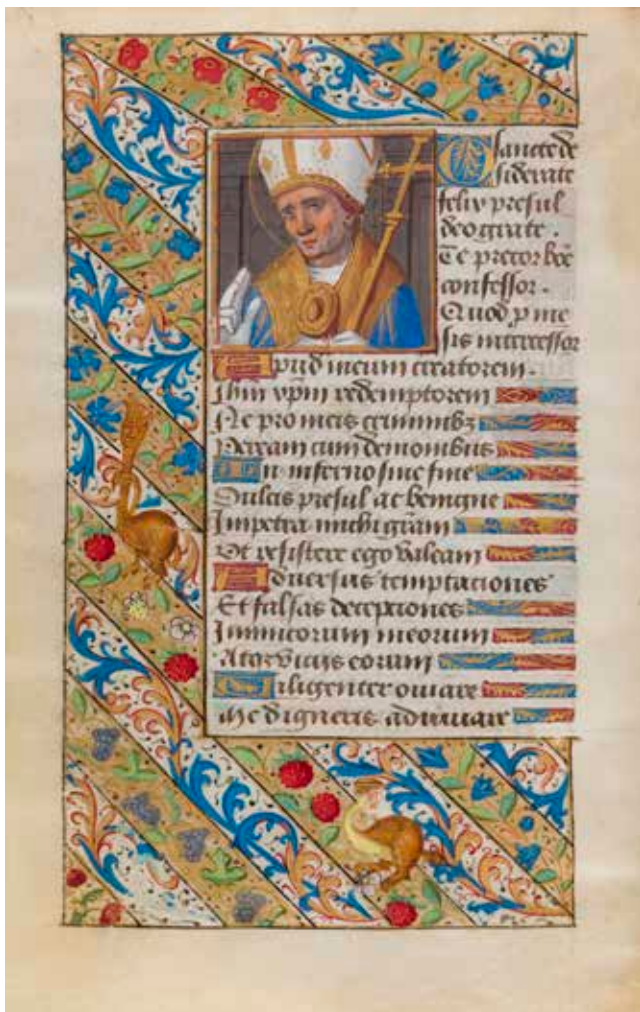 O sancte de
siderate
felix presul
deo grate.
Te precor bōe
confessor.
Quod p me
sis intercessor
Apud meum creatorem.
Ihm xpm redemptorem
Ne pro meis criminibz
Peream cum demonibus
In inferno sine fine
Dulcis presul ac benigne
Impetra michi gram
Ut resistere ego valeam
Adversus temptaciones
Et falsas decepciones
Inimicorum meorum
Atqz viciis eorum
Diligenter oviare
Me digneris adiuvare